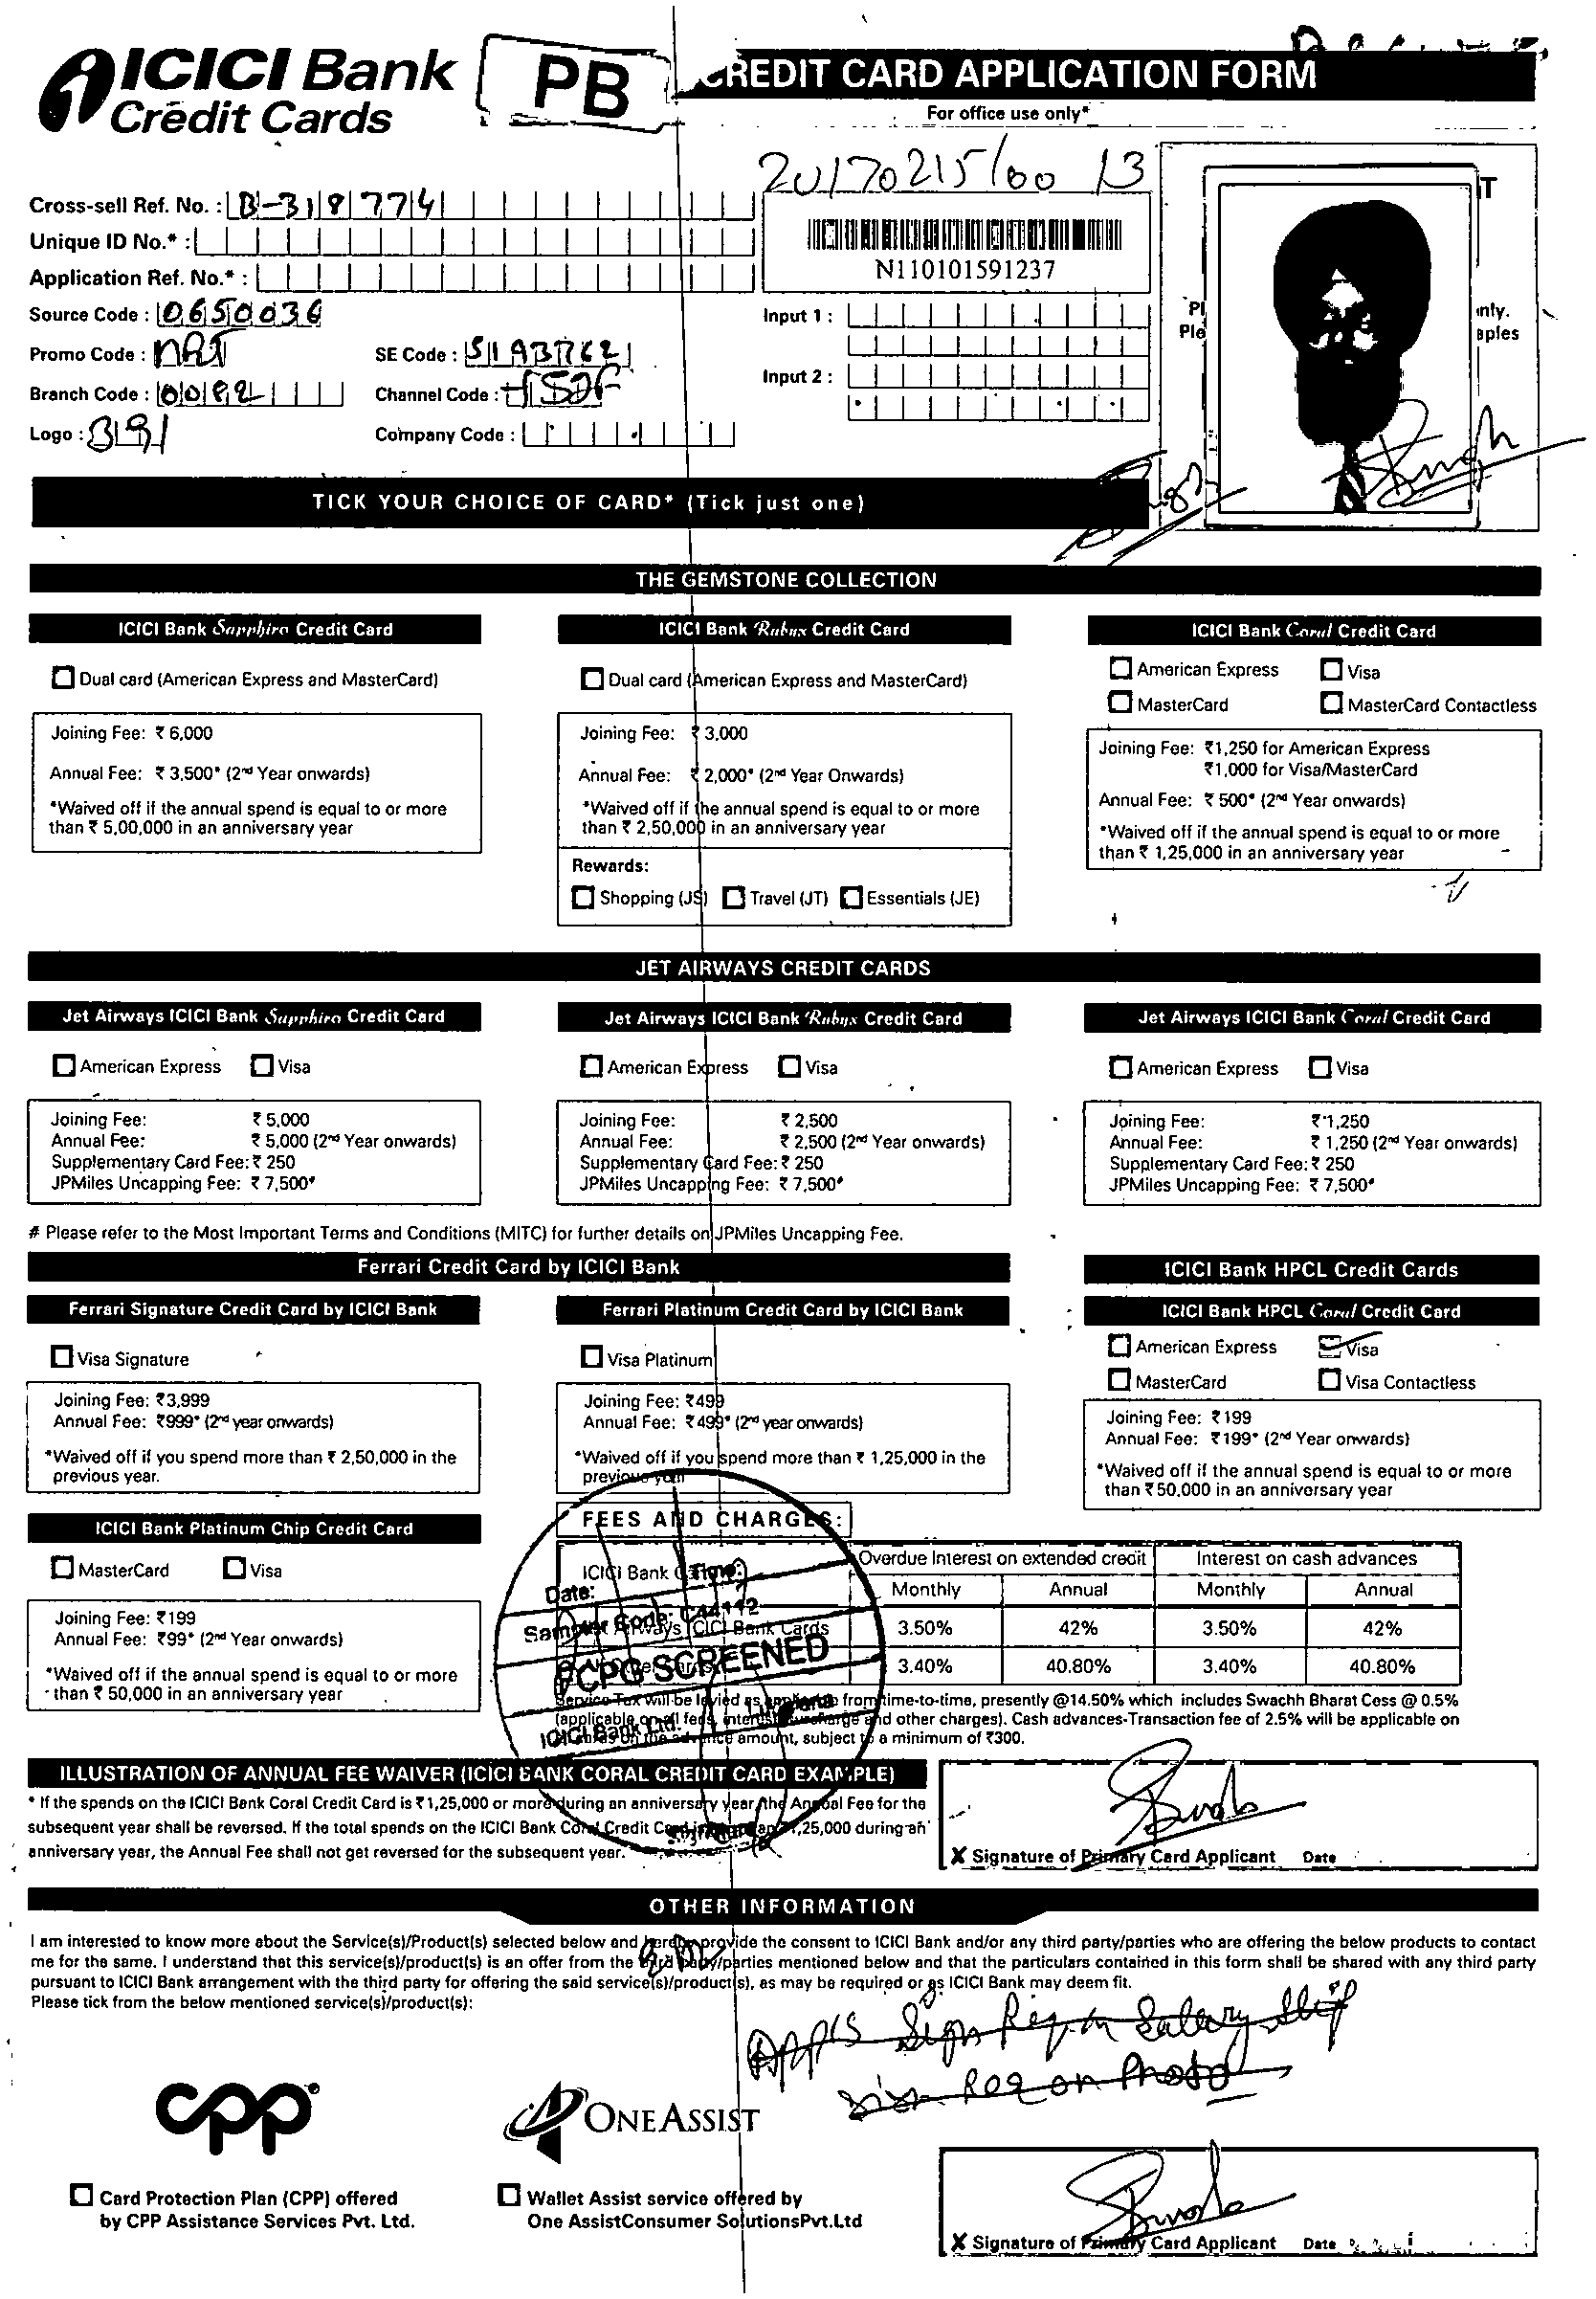 ICICI Bank
Credit Cards
PB
CREDIT CARD APPLICATION FORM
For office use only*
20170215/00 13
Cross-sell Ref. No. : B-3187774
N110101591237
Unique ID No.* :
Application Ref. No.* :
Source Code : 0650036
Input 1 :
Promo Code :
SE Code :
Input 2 :
Branch Code :
Channel Code :
Logo :
Company Code :
TICK YOUR CHOICE OF CARD* (Tick just one)
THE GEMSTONE COLLECTION
ICICI Bank Sapphiro Credit Card
Dual card (American Express and MasterCard)
Joining Fee: ₹ 6,000
Annual Fee: ₹ 3,500* (2nd Year onwards)
*Waived off if the annual spend is equal to or more
than ₹ 5,00,000 in an anniversary year
ICICI Bank Rubyx Credit Card
Dual card (American Express and MasterCard)
Joining Fee: ₹ 3,000
Annual Fee: ₹ 2,000* (2nd Year Onwards)
*Waived off if the annual spend is equal to or more
than ₹ 2,50,000 in an anniversary year
Rewards:
Shopping (JS) Travel (JT) Essentials (JE)
ICICI Bank Coral Credit Card
American Express Visa
MasterCard MasterCard Contactless
Joining Fee: ₹1,250 for American Express
₹1,000 for Visa/MasterCard
Annual Fee: ₹ 500* (2nd Year onwards)
*Waived off if the annual spend is equal to or more
than ₹ 1,25,000 in an anniversary year
JET AIRWAYS CREDIT CARDS
Jet Airways ICICI Bank Sapphiro Credit Card
American Express Visa
Joining Fee: ₹ 5,000
Annual Fee: ₹ 5,000 (2nd Year onwards)
Supplementary Card Fee: ₹ 250
JPMiles Uncapping Fee: ₹ 7,500#
Jet Airways ICICI Bank Rubyx Credit Card
American Express Visa
Joining Fee: ₹ 2,500
Annual Fee: ₹ 2,500 (2nd Year onwards)
Supplementary Card Fee: ₹ 250
JPMiles Uncapping Fee: ₹ 7,500#
Jet Airways ICICI Bank Coral Credit Card
American Express Visa
Joining Fee: ₹ 1,250
Annual Fee: ₹ 1,250 (2nd Year onwards)
Supplementary Card Fee: ₹ 250
JPMiles Uncapping Fee: ₹ 7,500#
# Please refer to the Most Important Terms and Conditions (MITC) for further details on JPMiles Uncapping Fee.
Ferrari Credit Card by ICICI Bank
Ferrari Signature Credit Card by ICICI Bank
Visa Signature
Joining Fee: ₹3,999
Annual Fee: ₹999* (2nd year onwards)
*Waived off if you spend more than ₹ 2,50,000 in the
previous year.
Ferrari Platinum Credit Card by ICICI Bank
Visa Platinum
Joining Fee: ₹499
Annual Fee: ₹499* (2nd year onwards)
*Waived off if you spend more than ₹ 1,25,000 in the
previous year
ICICI Bank HPCL Credit Cards
ICICI Bank HPCL Coral Credit Card
American Express Visa
MasterCard Visa Contactless
Joining Fee: ₹199
Annual Fee: ₹199* (2nd Year onwards)
*Waived off if the annual spend is equal to or more
than ₹50,000 in an anniversary year
ICICI Bank Platinum Chip Credit Card
MasterCard Visa
Joining Fee: ₹199
Annual Fee: ₹99* (2nd Year onwards)
*Waived off if the annual spend is equal to or more
than ₹ 50,000 in an anniversary year
FEES AND CHARGES:
ICICI Bank
Overdue Interest on extended credit Interest on cash advances
Monthly Annual Monthly Annual
Airways ICICI Bank Cards 3.50% 42% 3.50% 42%
3.40% 40.80% 3.40% 40.80%
Service Tax will be levied as applicable from time-to-time, presently @14.50% which includes Swachh Bharat Cess @ 0.5%
(applicable on all fees, interest, surcharge and other charges). Cash advances-Transaction fee of 2.5% will be applicable on
on the advance amount, subject to a minimum of ₹300.
Date: Time:
Sampler Code: C44112
CPC SCREENED
ICICI Bank Ltd. Ludhiana
ILLUSTRATION OF ANNUAL FEE WAIVER (ICICI BANK CORAL CREDIT CARD EXAMPLE)
* If the spends on the ICICI Bank Coral Credit Card is ₹1,25,000 or more during an anniversary year, the Annual Fee for the
subsequent year shall be reversed. If the total spends on the ICICI Bank Coral Credit Card 1,25,000 during an
anniversary year, the Annual Fee shall not get reversed for the subsequent year.
X Signature of Primary Card Applicant Date
OTHER INFORMATION
I am interested to know more about the Service(s)/Product(s) selected below and hereby provide the consent to ICICI Bank and/or any third party/parties who are offering the below products to contact
me for the same. I understand that this service(s)/product(s) is an offer from the third party/parties mentioned below and that the particulars contained in this form shall be shared with any third party
pursuant to ICICI Bank arrangement with the third party for offering the said service(s)/product(s), as may be required or as ICICI Bank may deem fit.
Please tick from the below mentioned service(s)/product(s):
App's Sign Req. on Salary Slip
Sign Req on Photo
cpp
ONEASSIST
Card Protection Plan (CPP) offered
by CPP Assistance Services Pvt. Ltd.
Wallet Assist service offered by
One AssistConsumer SolutionsPvt.Ltd
X Signature of Primary Card Applicant Date